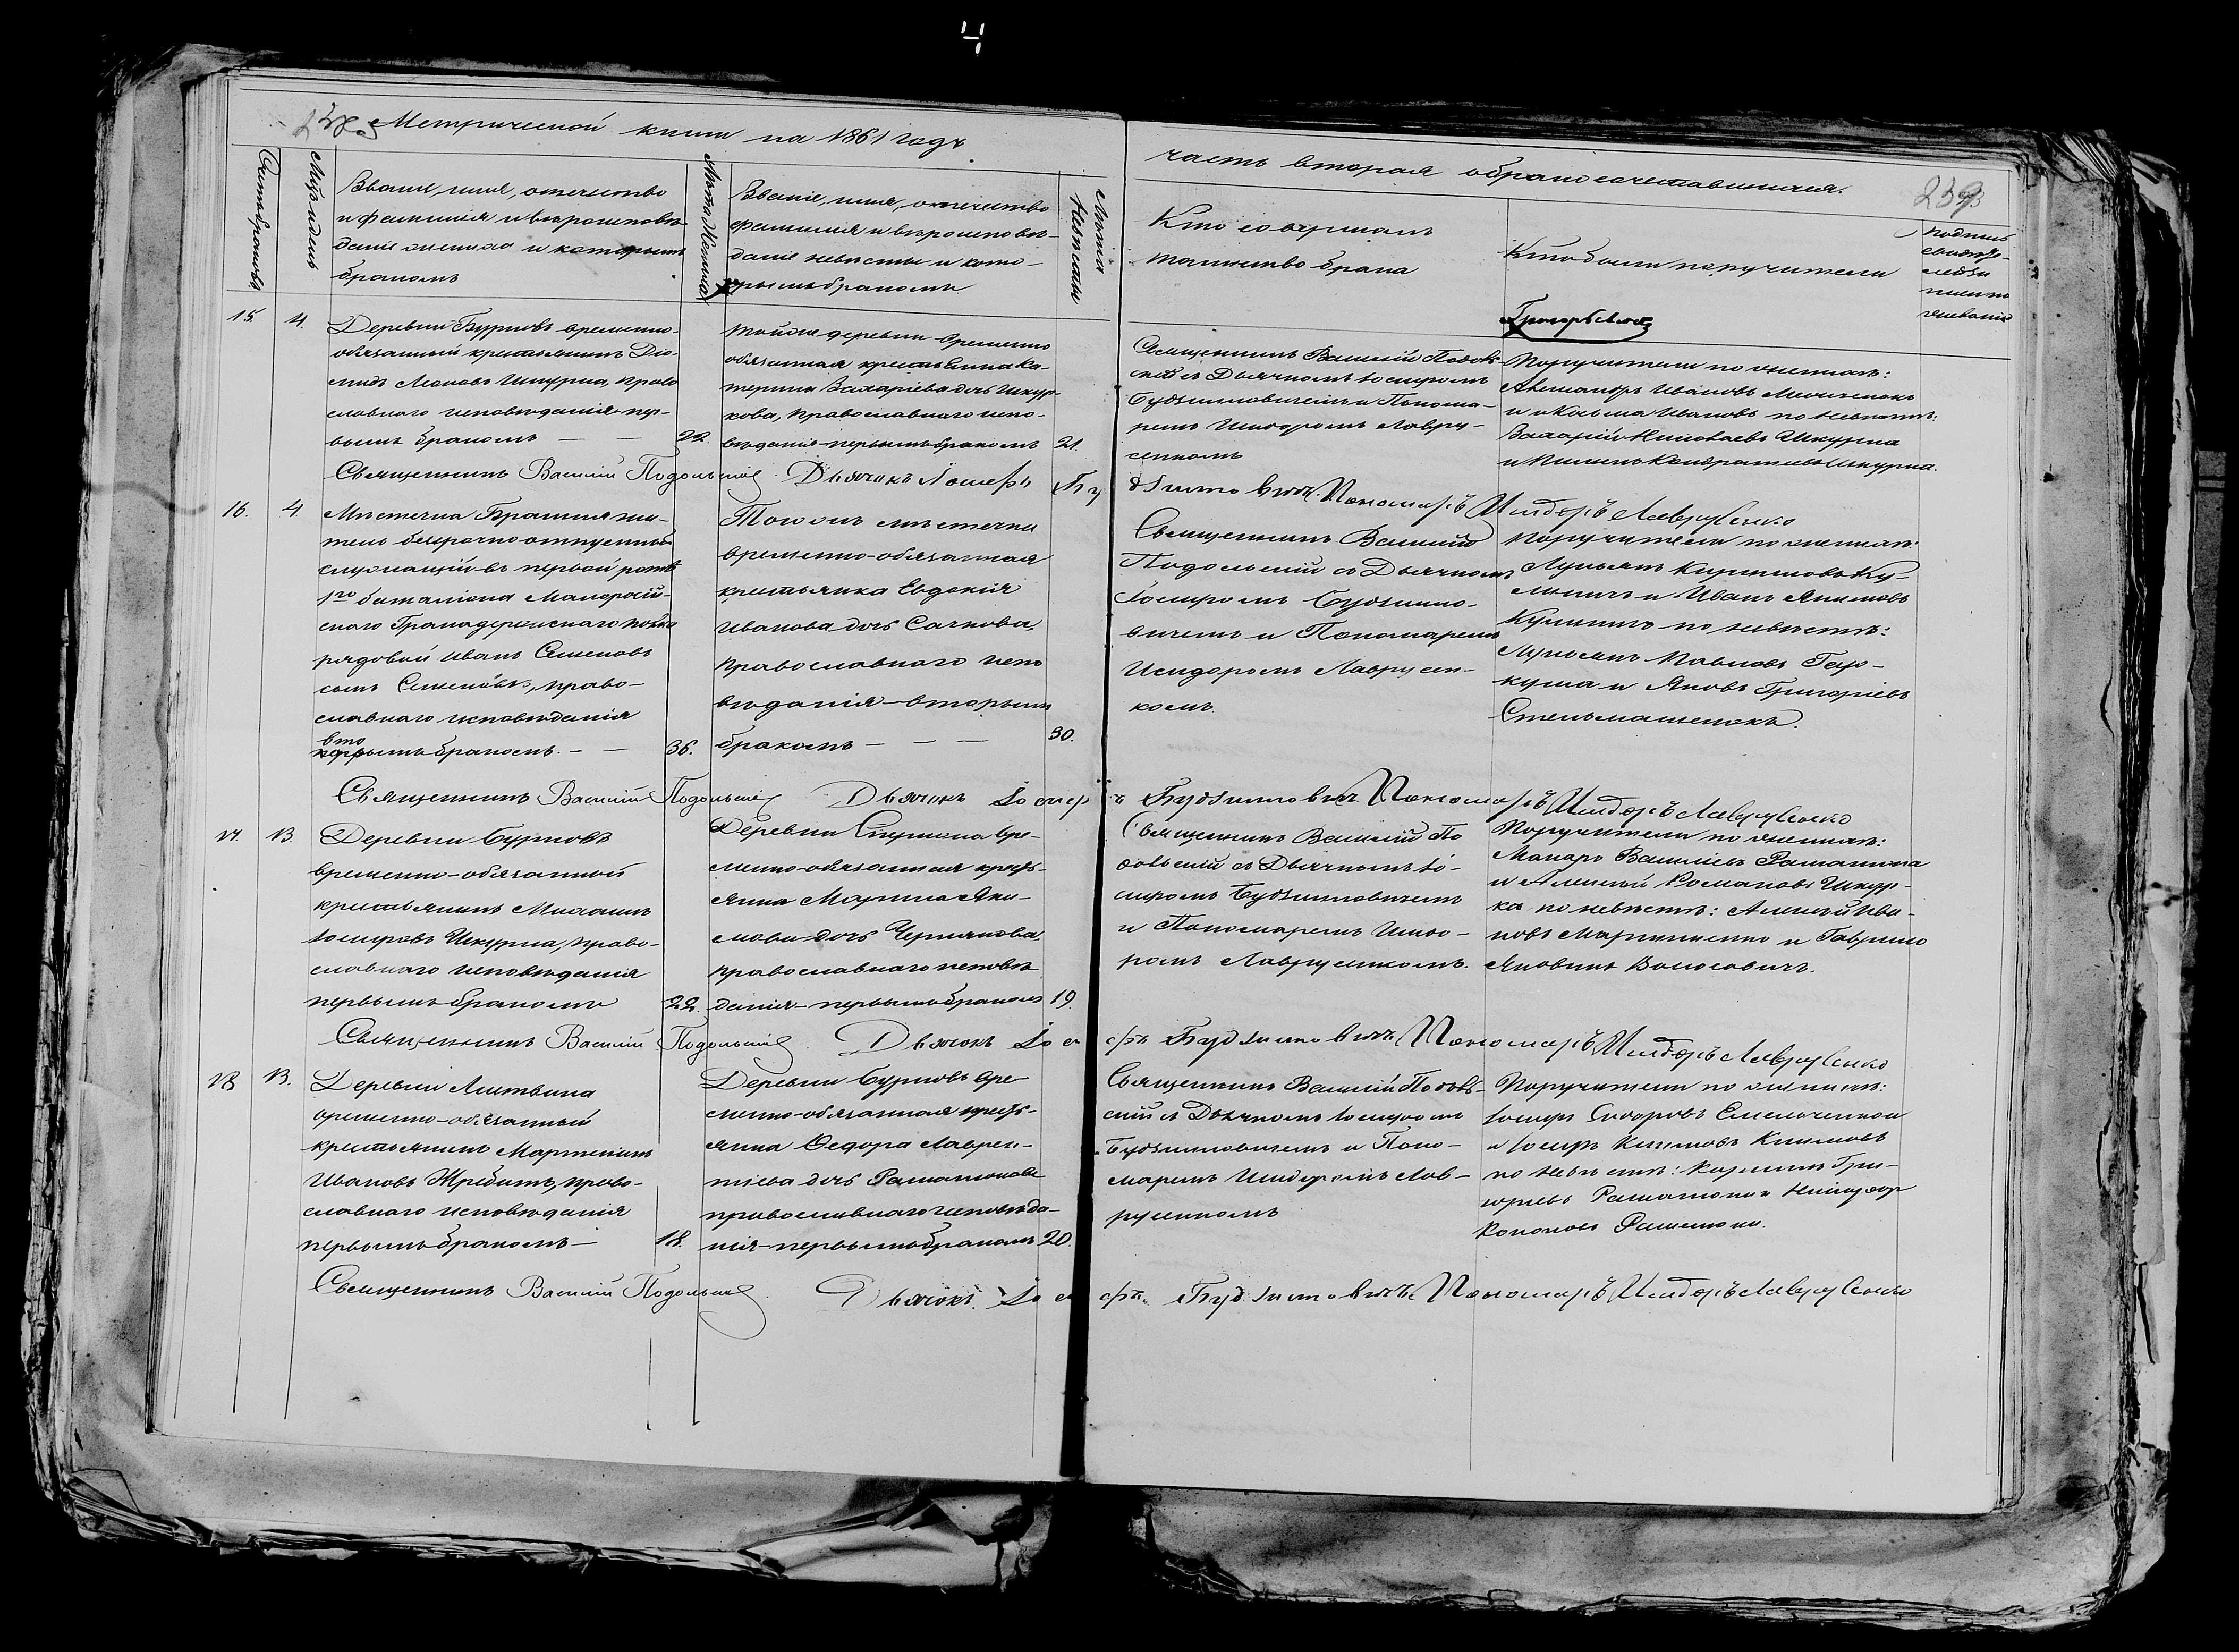 Метрической книги на 1861 годъ
часть вторая о бракосочетавшихся.
Счетъ браковъ
Мѣс. и день
Званіе, имя, отчество
и фамилія и вѣроисповѣ-
даніе жениха и которымъ
бракомъ
Лѣта Жениха
Званіе, имя, отчество
фамилія и вѣроисповѣ-
даніе невѣсты и кото-
рымъ бракомъ
Лѣта Невѣсты
Кто совершалъ
таинство брака
Кто были поручители
15.
4.
Деревни Бурковъ временно-
обязанный крестьянинъ Діо-
мидъ Леоновъ Шкурка, право
славнаго исповѣданія пер-
вымъ бракомъ — —
22.
Тойже деревни временно
обязанная крестьянка Ка-
терина Захаріева дочь Шкур-
кова, православнаго испо-
вѣданія первымъ бракомъ
21.
Священникъ Василій Подоль-
скій съ Дьячкомъ Іосифомъ
Будзиновичемъ и Понома-
ремъ Исидоромъ Лавру-
сенкомъ
Поручители по женихѣ:
Александръ Ивановъ
и Козьма Ивановъ по невѣстѣ:
Захарій Николаевъ Шкурка
и Кондратьевъ Шкурка.
Священникъ Василій Подольскій Дьячокъ Іосифъ Будзиновичъ. Пономарь Исидоръ Лаврусенко
16.
4
Мѣстечка Брагиня жи-
тель безсрочно отпускный
служащій въ первой ротѣ
1го баталіона Малоросій-
скаго Гранадерскаго полка
рядовой Иванъ Семеновъ
сынъ Семеновъ, право-
славнаго исповѣданія
вторымъ бракомъ. — —
36.
Тогожъ мѣстечка
временно-обязанная
крестьянка Евдокія
Иванова дочь Сачкова,
православнаго испо
вѣданія — вторымъ
бракомъ — — —
30.
Священникъ Василій
Подольскій съ Дьячкомъ
Іосифомъ Будзино-
вичемъ и Пономаремъ
Исидоромъ Лаврусен-
комъ.
Поручители по женихѣ:
Лукьянъ Кириловъ
и Иванъ Якимовъ
по невѣстѣ:
Лукьянъ Павловъ
и Яковъ Григоріевъ
Стельмашенокъ.
Священникъ Василій Подольскій Дьячокъ Іосифъ Будзиновичъ Пономарь Исидоръ Лаврусенко
17.
13.
Деревни Бурковъ
временно-обязанной
крестьянинъ Михаилъ
Іосифовъ Шкурка, право-
славнаго исповѣданія
первымъ бракомъ
22.
Деревни вре-
менно-обязанная кресть-
янка Марина Яки-
мова дочь Чернякова
православнаго исповѣ
данія — первымъ бракомъ
19.
Священникъ Василій По
дольскій съ Дьячкомъ Іо-
сифомъ Будзиновичемъ
и Пономаремъ Исидо-
ромъ Лаврусенкомъ.
Поручители по женихѣ:
Макаръ Василіевъ
и Алексѣй Романовъ Шкур-
ка по невѣстѣ: Алексѣй Ива-
новъ и Гаврило
Яковинъ Волосовичъ.
Священникъ Василій Подольскій Дьячокъ Іосифъ Будзиновичъ Пономарь Исидоръ Лаврусенко
18
13.
Деревни Литвина
временно-обязанный
крестьянинъ
Ивановъ право-
славнаго исповѣданія
первымъ бракомъ —
18.
Деревни Бурковъ вре-
менно-обязанная кресть-
янка Ѳедора Лаврен-
тіева дочь
православнаго исповѣда-
нія — первымъ бракомъ
20.
Священникъ Василій Подоль-
скій съ Дьячкомъ Іосифомъ
Будзиновичемъ и Поно-
маремъ Исидоромъ Лав-
русенкомъ
Поручители по женихѣ:
Іосифъ
и Іосифъ Климовъ
по невѣстѣ: Гри-
горіевъ и Никифоръ
Кононовъ
Священникъ Василій Подольскій Дьячокъ. Іосифъ. Будзиновичъ. Пономарь Исидоръ Лаврусенко